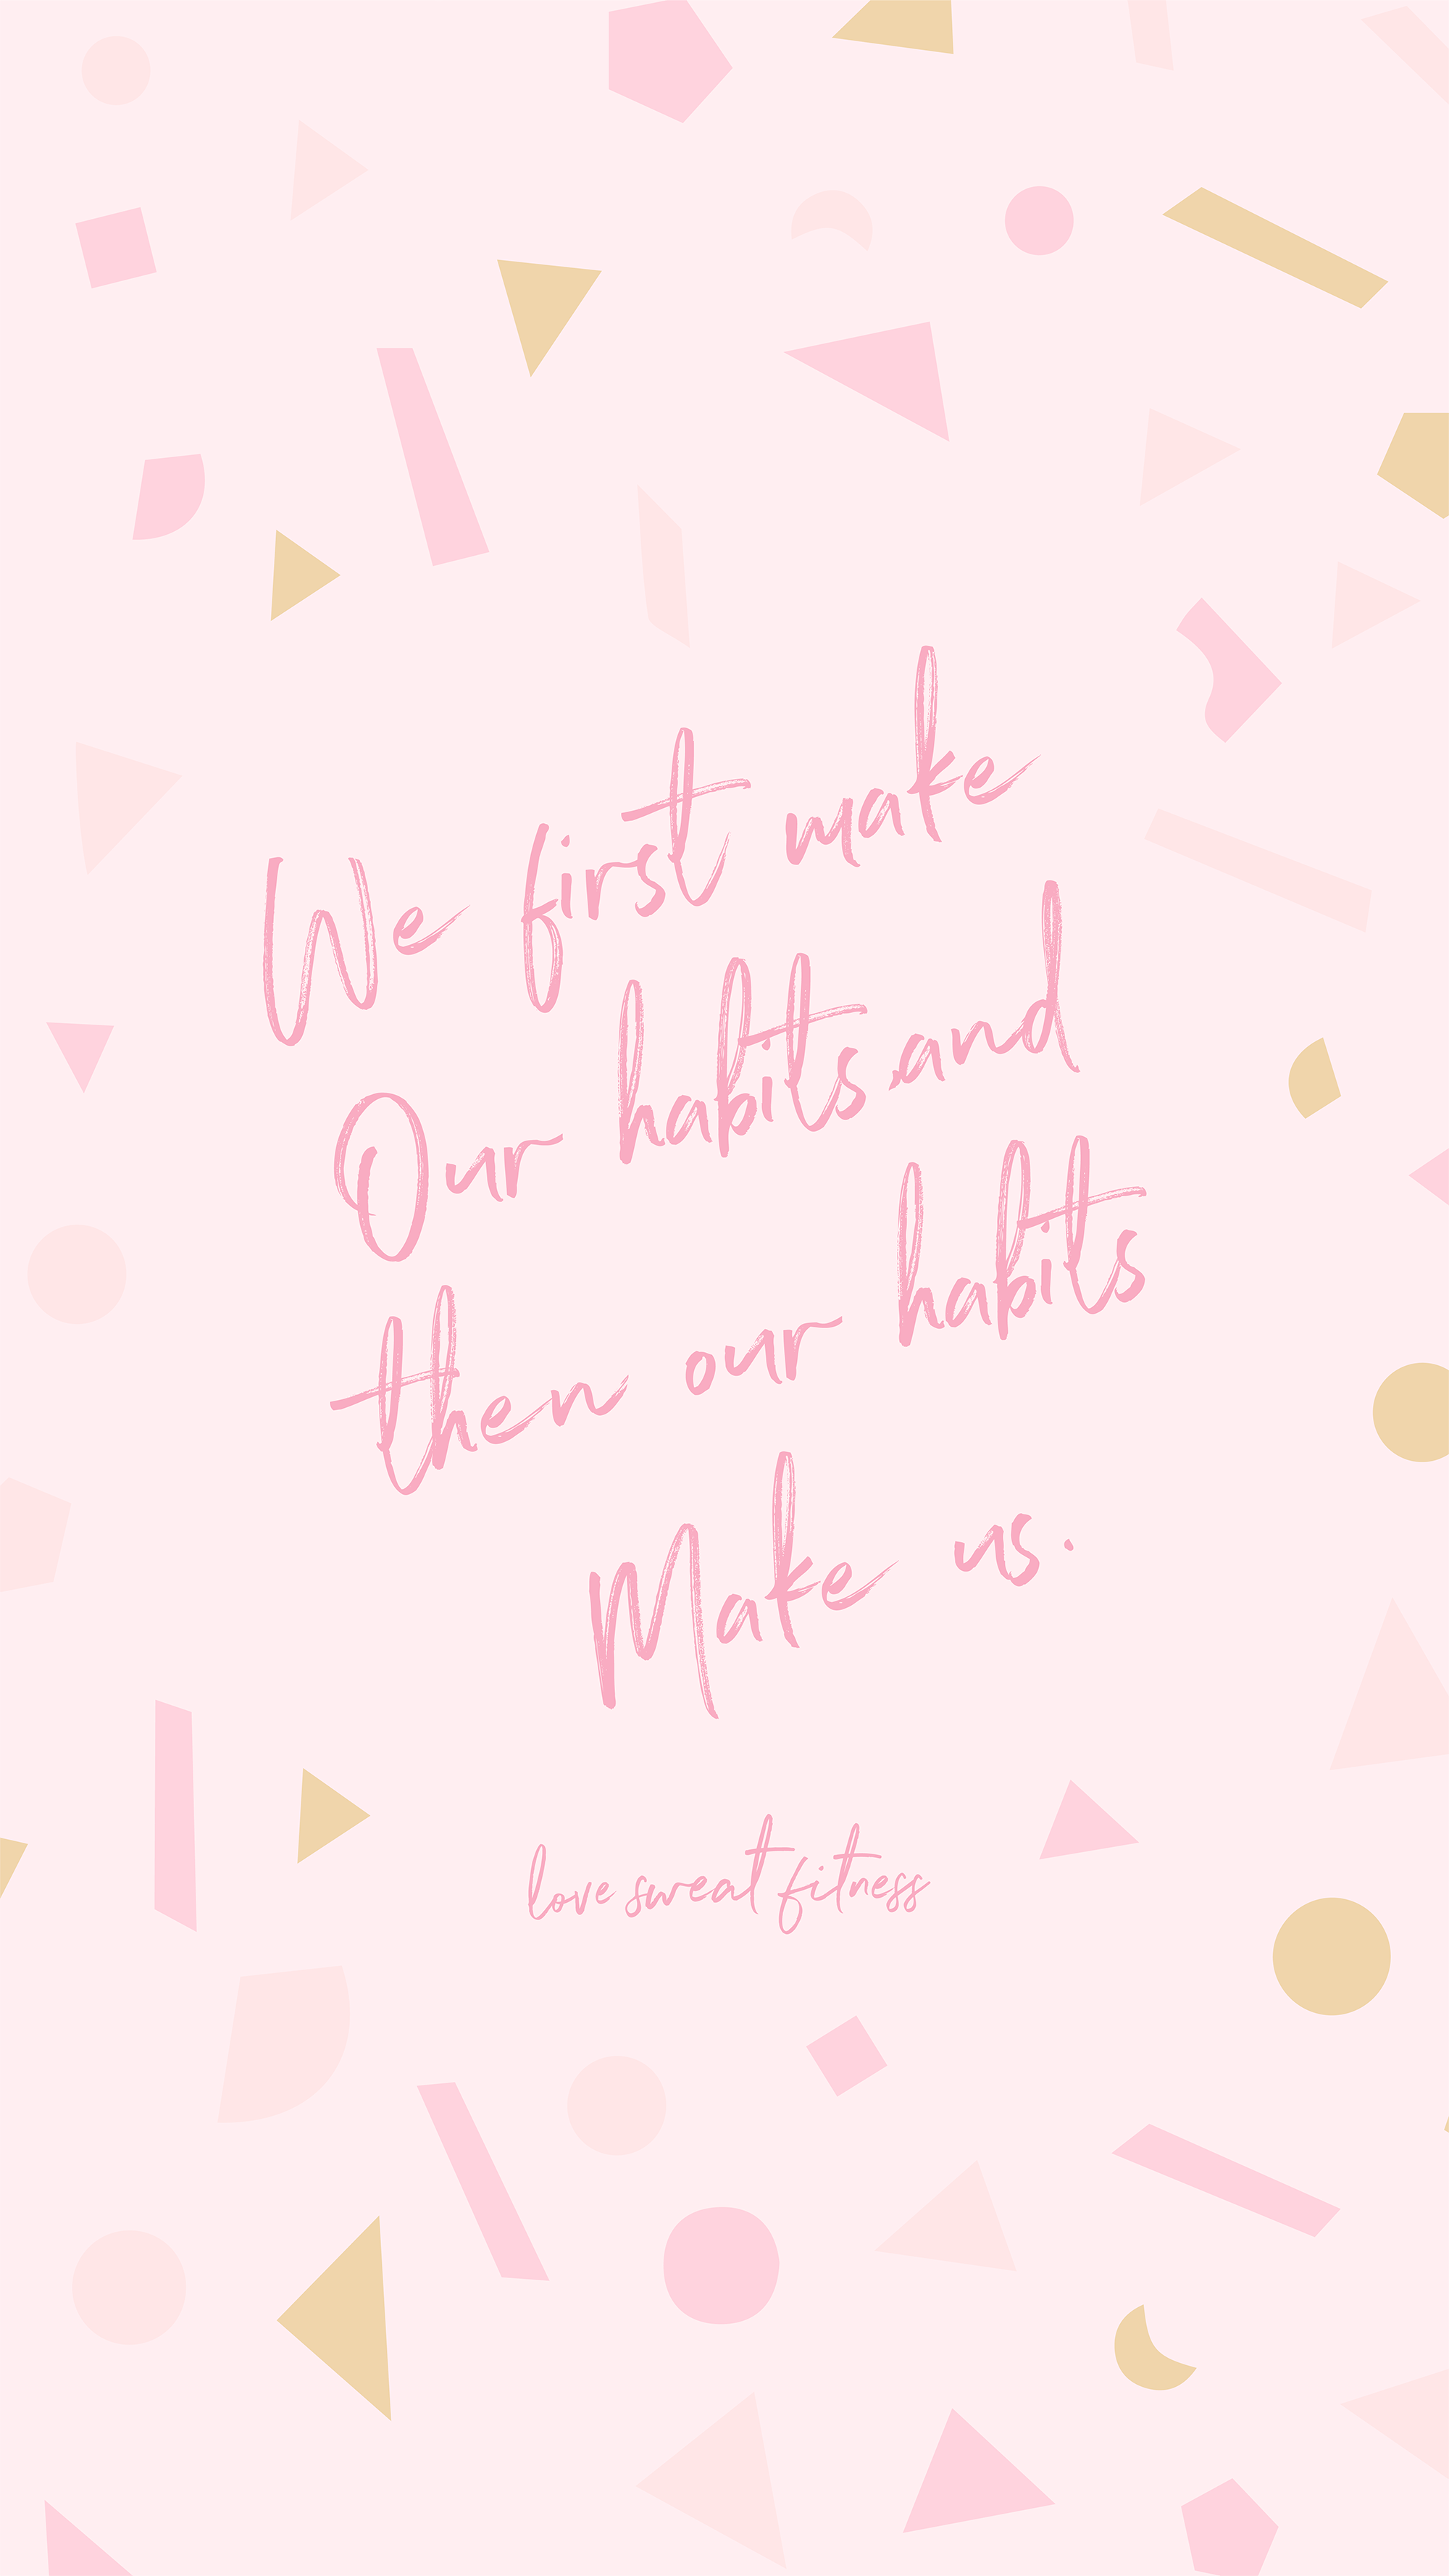 We first make
Our habits,and
then our habits
Make us.
love sweat fitness